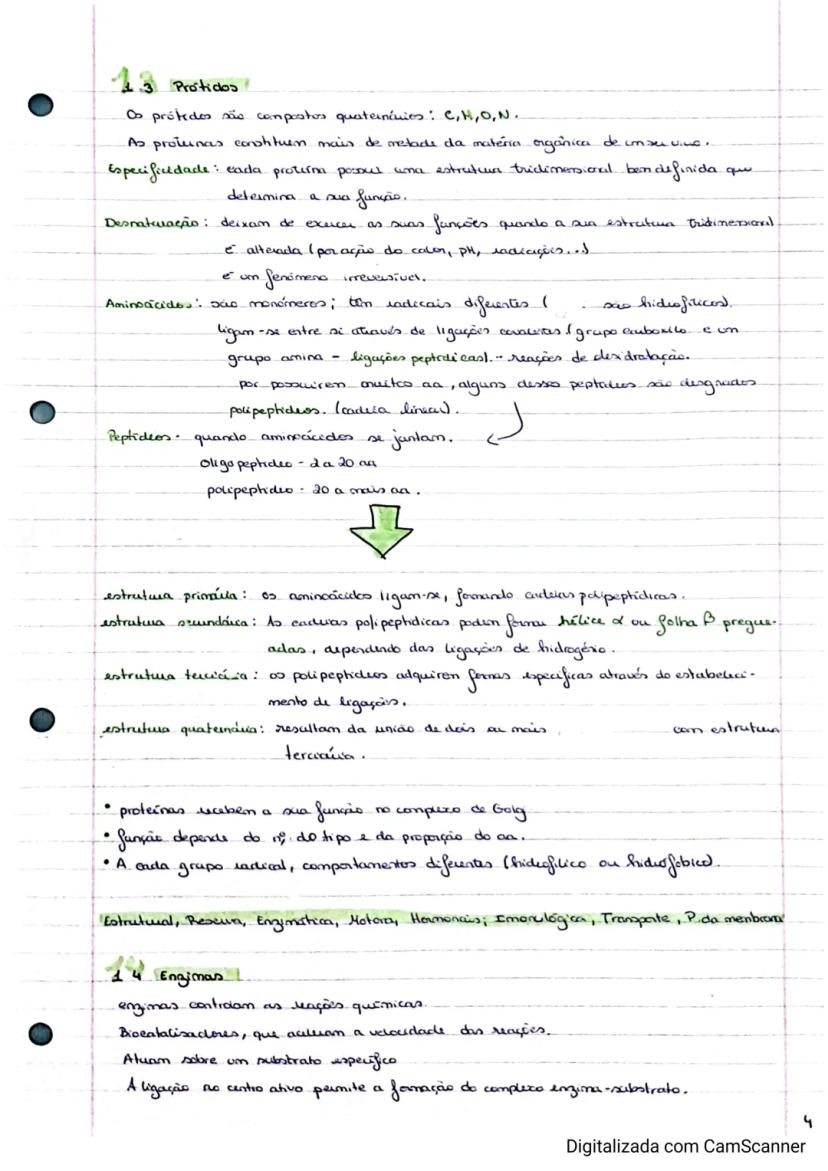 1.3 Prótidos
Os prótidos são compostos quaternários: C,H,O,N.
As proteínas constituem mais de metade da matéria orgânica de um ser vivo.
Especificidade: cada proteína possui uma estrutura tridimensional bem definida que
determina a sua função.
Desnaturação: deixam de exercer as suas funções quando a sua estrutura tridimensional
é alterada (por ação do calor, pH, radiações...)
é um fenómeno irreversível.
Aminoácidos: são monómeros; têm radicais diferentes ( . são hidrofílicos).
ligam-se entre si através de ligações covalentes (grupo carboxilo e um
grupo amina - ligações peptídicas). - reações de desidratação.
por possuirem muitos aa, alguns desses peptídeos são designados
polipeptídeos. (cadeia linear).
Peptídeos - quando aminoácidos se juntam.
Oligopeptídeo - 2 a 20 aa
polipeptídeo - 20 a mais aa.
estrutura primária: os aminoácidos ligam-se, formando cadeias polipeptídicas.
estrutura secundária: As cadeias polipeptídicas podem formar hélice α ou folha β pregue-
adas, dependendo das ligações de hidrogénio.
estrutura terciária: os polipeptídeos adquirem formas específicas através do estabeleci-
mento de ligações.
estrutura quaternária: resultam da união de dois ou mais com estrutura
terciária.
• proteínas recebem a sua função no complexo de Golg
• função depende do nº, do tipo e da proporção do aa.
• A cada grupo radical, comportamentos diferentes (hidrofílico ou hidrofóbico).
Estrutural, Reserva, Enzimática, Motora, Hormonais; Imonulógica, Transporte, P. da membrana
1.4 Enzimas
enzimas controlam as reações químicas.
Biocatalisadores, que aceleram a velocidade das reações.
Atuam sobre um substrato específico
A ligação ao centro ativo permite a formação do complexo enzima-substrato.
4
Digitalizada com CamScanner